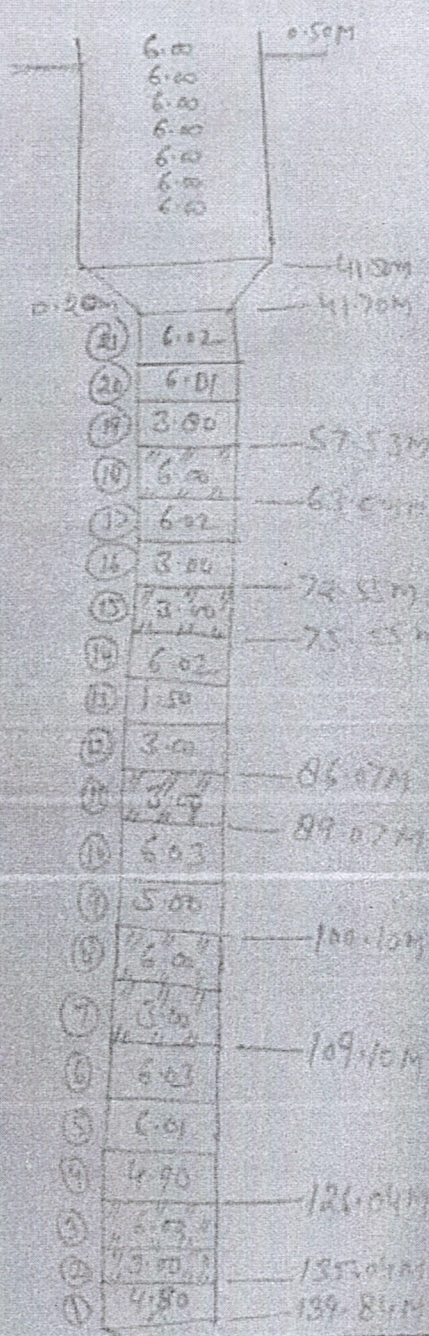 0.50M
6.00
6.00
6.00
6.00
6.00
6.00
6.00
41.50M
0.20m 41.70M
21 6.02
20 6.01
19 3.80
57.53M
18 6.00
17 6.02
16 3.00
15 3.00
14 6.02
13 1.50
12 3.00
86.07M
11 3.00
89.07M
10 6.03
9 5.00
100.10M
8 6.00
7 3.00
109.10M
6 6.03
5 6.01
4 4.90
126.04M
3 6.00
2 3.00
135.04M
1 4.80
139.84M